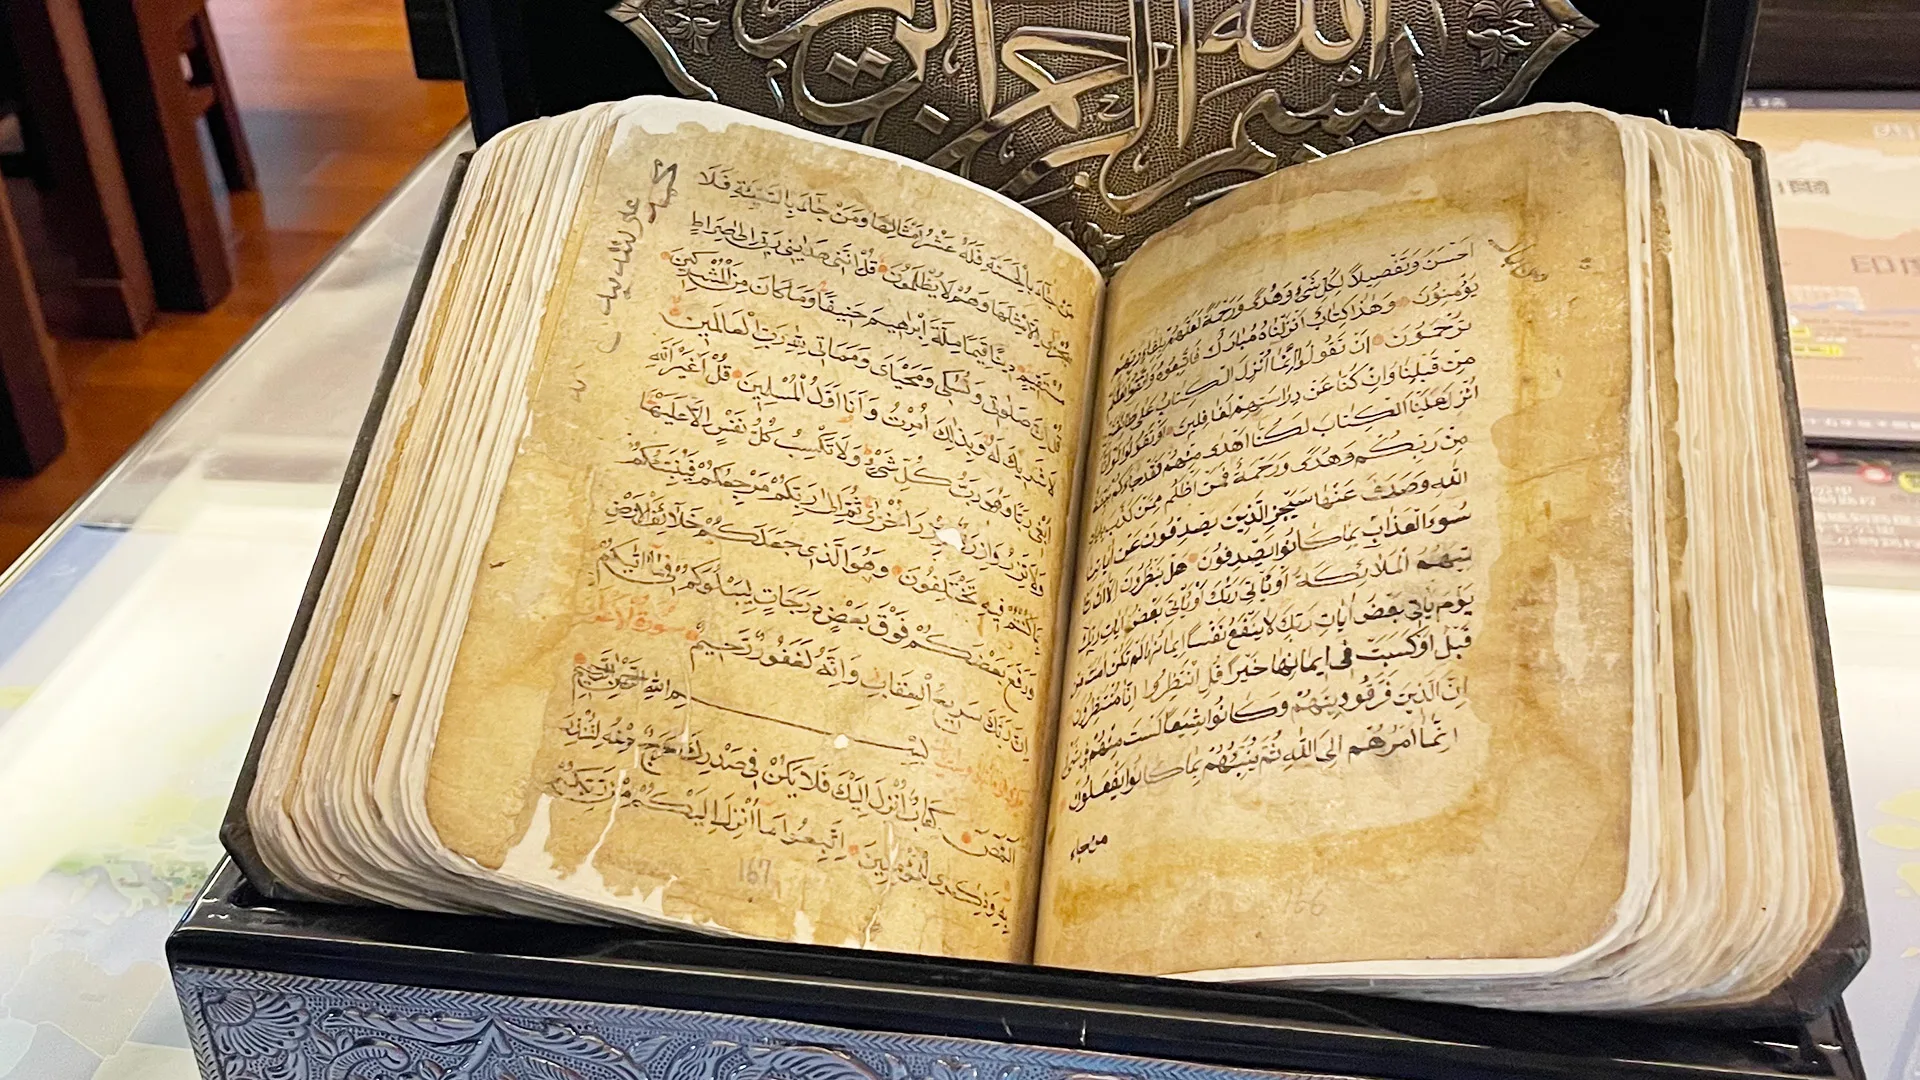 بسم الله الرحمن
اَحْسَنَ وَتَفْصِيلًا لِكُلِّ شَىْءٍ وَهُدًى وَرَحْمَةً لَعَلَّهُمْ بِلِقَاءِ رَبِّهِمْ
يُؤْمِنُونَ وَهٰذَا كِتَابٌ اَنْزَلْنَاهُ مُبَارَكٌ فَاتَّبِعُوهُ وَاتَّقُوا لَعَلَّكُمْ
تُرْحَمُونَ اَنْ تَقُولُوا اِنَّمَا اُنْزِلَ الْكِتَابُ عَلٰى طَائِفَتَيْنِ
مِنْ قَبْلِنَا وَاِنْ كُنَّا عَنْ دِرَاسَتِهِمْ لَغَافِلِينَ اَوْ تَقُولُوا لَوْ اَنَّا
اُنْزِلَ عَلَيْنَا الْكِتَابُ لَكُنَّا اَهْدٰى مِنْهُمْ فَقَدْ جَاءَكُمْ بَيِّنَةٌ
مِنْ رَبِّكُمْ وَهُدًى وَرَحْمَةٌ فَمَنْ اَظْلَمُ مِمَّنْ كَذَّبَ بِاٰيَاتِ
اللهِ وَصَدَفَ عَنْهَا سَنَجْزِى الَّذِينَ يَصْدِفُونَ عَنْ اٰيَاتِنَا
سُوءَ الْعَذَابِ بِمَا كَانُوا يَصْدِفُونَ هَلْ يَنْظُرُونَ اِلَّا اَنْ
تَاْتِيَهُمُ الْمَلَائِكَةُ اَوْ يَاْتِىَ رَبُّكَ اَوْ يَاْتِىَ بَعْضُ اٰيَاتِ رَبِّكَ
يَوْمَ يَاْتِى بَعْضُ اٰيَاتِ رَبِّكَ لَا يَنْفَعُ نَفْسًا اِيمَانُهَا لَمْ تَكُنْ اٰمَنَتْ مِنْ
قَبْلُ اَوْ كَسَبَتْ فِى اِيمَانِهَا خَيْرًا قُلِ انْتَظِرُوا اِنَّا مُنْتَظِرُونَ
اِنَّ الَّذِينَ فَرَّقُوا دِينَهُمْ وَكَانُوا شِيَعًا لَسْتَ مِنْهُمْ فِى شَىْءٍ
اِنَّمَا اَمْرُهُمْ اِلَى اللهِ ثُمَّ يُنَبِّئُهُمْ بِمَا كَانُوا يَفْعَلُونَ
من جاء
166
مَنْ جَاءَ بِالْحَسَنَةِ فَلَهُ عَشْرُ اَمْثَالِهَا وَمَنْ جَاءَ بِالسَّيِّئَةِ فَلَا
يُجْزٰى اِلَّا مِثْلَهَا وَهُمْ لَا يُظْلَمُونَ قُلْ اِنَّنِى هَدَانِى رَبِّى اِلٰى صِرَاطٍ
مُسْتَقِيمٍ دِينًا قِيَمًا مِلَّةَ اِبْرَاهِيمَ حَنِيفًا وَمَا كَانَ مِنَ الْمُشْرِكِينَ
قُلْ اِنَّ صَلَوتِى وَنُسُكِى وَمَحْيَاىَ وَمَمَاتِى لِلّٰهِ رَبِّ الْعَالَمِينَ
لَا شَرِيكَ لَهُ وَبِذٰلِكَ اُمِرْتُ وَاَنَا اَوَّلُ الْمُسْلِمِينَ قُلْ اَغَيْرَ اللهِ
اَبْغِى رَبًّا وَهُوَ رَبُّ كُلِّ شَىْءٍ وَلَا تَكْسِبُ كُلُّ نَفْسٍ اِلَّا عَلَيْهَا
وَلَا تَزِرُ وَازِرَةٌ وِزْرَ اُخْرٰى ثُمَّ اِلٰى رَبِّكُمْ مَرْجِعُكُمْ فَيُنَبِّئُكُمْ
بِمَا كُنْتُمْ فِيهِ تَخْتَلِفُونَ وَهُوَ الَّذِى جَعَلَكُمْ خَلَائِفَ الْاَرْضِ
وَرَفَعَ بَعْضَكُمْ فَوْقَ بَعْضٍ دَرَجَاتٍ لِيَبْلُوَكُمْ فِى مَا اٰتٰيكُمْ
اِنَّ رَبَّكَ سَرِيعُ الْعِقَابِ وَاِنَّهُ لَغَفُورٌ رَحِيمٌ سورة الاعراف
بسم الله الرحمن الرحيم
الٓمٓصٓ كِتَابٌ اُنْزِلَ اِلَيْكَ فَلَا يَكُنْ فِى صَدْرِكَ حَرَجٌ مِنْهُ لِتُنْذِرَ
بِهِ وَذِكْرٰى لِلْمُؤْمِنِينَ اِتَّبِعُوا مَا اُنْزِلَ اِلَيْكُمْ مِنْ رَبِّكُمْ
167